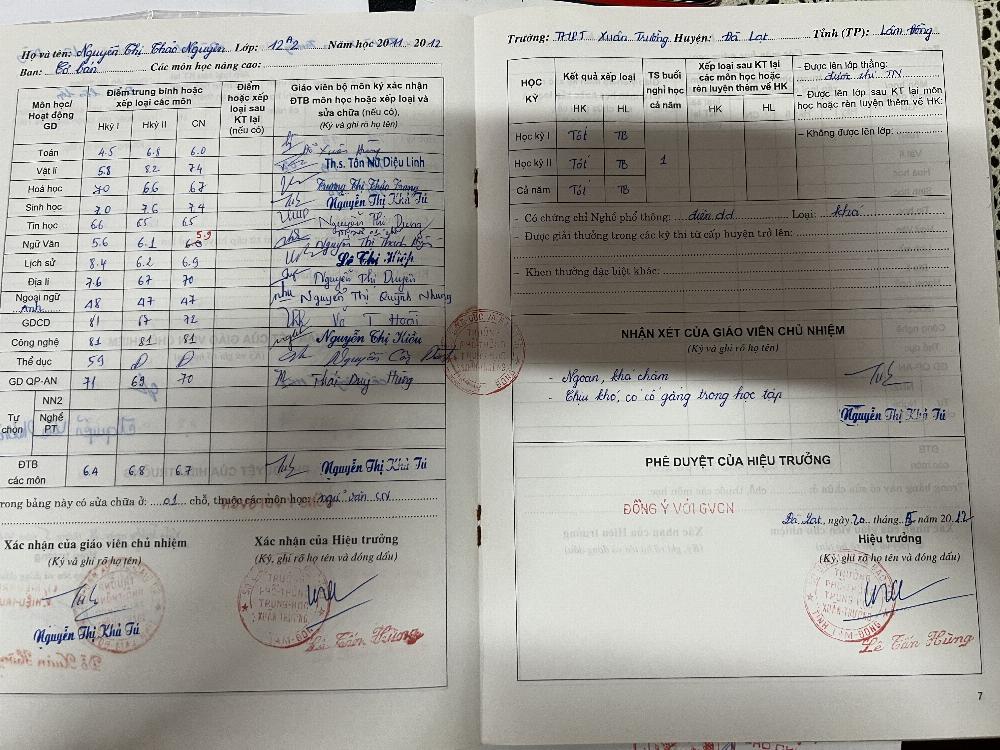 Họ và tên: Nguyễn Thị Thảo Nguyên Lớp: 12A2 Năm học 2011 - 2012
Ban: Cơ bản Các môn học nâng cao:
Môn học/ Hoạt động GD
Điểm trung bình hoặc xếp loại các môn
Hkỳ I Hkỳ II CN
Điểm hoặc xếp loại sau KT lại (nếu có)
Giáo viên bộ môn ký xác nhận ĐTB môn học hoặc xếp loại và sửa chữa (nếu có),
(Ký và ghi rõ họ tên)
Toán 4.5 6.8 6.0 Xuân
Vật lí 5.8 8.2 7.4 Th.s. Tôn Nữ Diệu Linh
Hoá học 70 66 67 Trương Thị Thảo Trang
Sinh học 7.0 7.6 7.4 Nguyễn Thị Khả Tú
Tin học 66 65 65 Nguyễn Thị Dung
Ngữ Văn 5.6 6.1 5.9 Nguyễn Thị Thanh
Lịch sử 8.4 6.2 6.9 Lê Thị Hiệp
Địa lí 7.6 67 70 Nguyễn Thị Duyên
Ngoại ngữ Anh 48 47 47 Nguyễn Thị Quỳnh Nhung
GDCD 81 67 72 Võ T Hoài
Công nghệ 81 81 81 Nguyễn Thị Kiều
Thể dục 59 Đ Đ Nguyễn Công
GD QP-AN 71 69 70 Thái Duy Hưng
Tự chọn
NN2
Nghề PT
ĐTB các môn 6.4 6.8 6.7 Nguyễn Thị Khả Tú
rong bảng này có sửa chữa ở: 01 chỗ, thuộc các môn học: ngữ văn CN
Xác nhận của giáo viên chủ nhiệm
(Ký và ghi rõ họ tên)
Nguyễn Thị Khả Tú
Xác nhận của Hiệu trưởng
(Ký, ghi rõ họ tên và đóng dấu)
Lê Tấn Hùng
Trường: THPT Xuân Trường Huyện: Đà Lạt Tỉnh (TP): Lâm Đồng
HỌC KỲ
Kết quả xếp loại
HK HL
TS buổi nghỉ học cả năm
Xếp loại sau KT lại các môn học hoặc rèn luyện thêm về HK
HK HL
Học kỳ I Tốt TB
Học kỳ II Tốt TB 1
Cả năm Tốt TB
- Được lên lớp thẳng:
được thi TN
- Được lên lớp sau KT lại môn học hoặc rèn luyện thêm về HK:
- Không được lên lớp:
- Có chứng chỉ Nghề phổ thông: điện dd Loại: khá
- Được giải thưởng trong các kỳ thi từ cấp huyện trở lên:
- Khen thưởng đặc biệt khác:
NHẬN XÉT CỦA GIÁO VIÊN CHỦ NHIỆM
(Ký và ghi rõ họ tên)
- Ngoan, khá chăm
- Chịu khó, có cố gắng trong học tập
Nguyễn Thị Khả Tú
PHÊ DUYỆT CỦA HIỆU TRƯỞNG
ĐỒNG Ý VỚI GVCN
Đà Lạt, ngày 20 tháng 5 năm 2012
Hiệu trưởng
(Ký, ghi rõ họ tên và đóng dấu)
TRƯỜNG
PHỔ-THÔNG
TRUNG-HỌC
XUÂN-TRƯỜNG
TỈNH LÂM-ĐỒNG
Lê Tấn Hùng
7